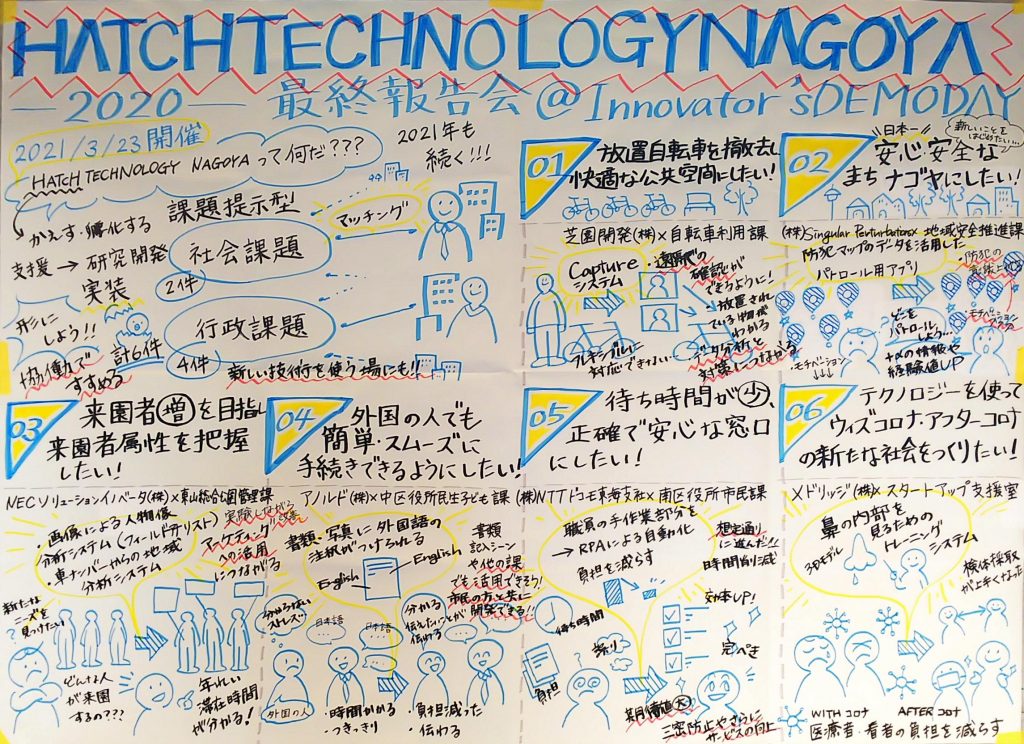 HATCH TECHNOLOGY NAGOYA
2020 最終報告会@Innovator'sDEMODAY
2021/3/23開催
HATCH TECHNOLOGY NAGOYAって何だ???
かえす・孵化する
支援→研究開発
実装
形に
しよう!!
協働で
すすめる
計6件
課題提示型
社会課題
2件
行政課題
4件
マッチング
2021年も
続く!!!
新しい技術を使う場にも!!
01
放置自転車を撤去し
快適な公共空間にしたい!
芝園開発(株)×自転車利用課
Capture
システム
・遠隔での
確認が
できるように!
・放置され
ている物梱
わかる
・データ分析と
対策につなげる
フレキシブルに
対応できない
02
日本一
安心安全な
まちナゴヤにしたい!
新しいことを
はじめたい…
(株)Singular Perturbations×地域安全推進課
防犯マップのデータを活用した
パトロール用アプリ
・モチベーション
↓↓↓
どこを
パトロール
しよう…
+αの情報や
経験値UP
03
来園者増を目指し
来園者属性を把握
したい!
NECソリューションイノベータ(株)×東山総合公園管理課
・画像による人物像
分析システム(フィールドアナリスト)
・車ナンバーからの地域
分析システム
マーケティング
への活用
につながる
新たな
ニーズを
見つけたい
どんな人
が来園
するの???
年れい
滞在時間
が分かる!
04
外国の人でも
簡単・スムーズに
手続きできるようにしたい!
アノルド(株)×中区役所民生子ども課
書類、写真に外国語の
注釈がつけられる
English
English
書類
記入シーン
や他の課
でも活用できそう!
市民の方と共に
開発できる!!
分からない
ストレス…
日本語
日本語
分かる
伝えたいことが
伝わる
外国の人
・時間かかる
・つきっきり
・負担減った
・伝わる
05
待ち時間が少、
正確で安心な窓口
にしたい!
(株)NTTドコモ東海支社×南区役所市民課
職員の手作業部分を
→RPAによる自動化
負担を減らす
想定通り
に進んだ!!
時間削減
待ち時間
負担
誤り
効率UP!
完ぺき
期待値大
三密防止やさらに
サービスの向上
06
テクノロジーを使って
ウィズコロナ・アフターコロナ
の新たな社会をつくりたい!
メドリッジ(株)×スタートアップ支援室
鼻の内部を
見るための
トレーニング
システム
3Dモデル
検体採取
が上手くなった
WITHコロナ
AFTERコロナ
医療者・看者の負担を減らす